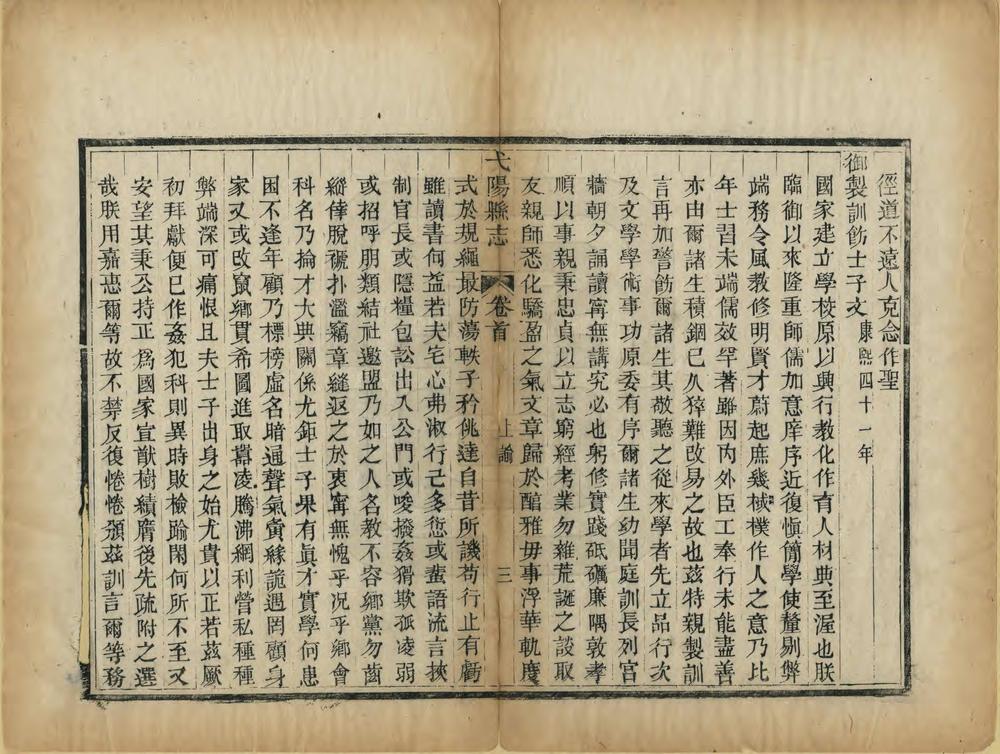 徑道不遠人克念作聖
御製訓飭士子文康熙四十一年
國家建立學校原以興行教化作育人材典至渥也朕
臨御以來隆重師儒加意庠序近復慎簡學使釐剔弊
端務令風教修明賢才蔚起庶幾棫樸作人之意乃比
年士習未端儒效罕著雖因內外臣工奉行未能盡善
亦由爾諸生積錮已久猝難改易之故也茲特親製訓
言再加警飭爾諸生其敬聽之從來學者先立品行次
及文學學術事功原委有序爾諸生幼聞庭訓長列宮
牆朝夕誦讀寗無講究必也躬修實踐砥礪廉隅敦孝
順以事親秉忠貞以立志窮經考業勿雜荒誕之談取
友親師悉化驕盈之氣文章歸於醇雅毋事浮華軌度
弋陽縣志 卷首 上諭 三
式於規繩最防蕩軼子衿佻達自昔所譏苟行止有虧
雖讀書何益若夫宅心弗淑行己多愆或蜚語流言挾
制官長或隱糧包訟出入公門或唆撥姦猾欺孤凌弱
或招呼朋類結社邀盟乃如之人名教不容鄉黨勿齒
縱倖脫褫扑濫竊章縫返之於衷寗無愧乎况乎鄉會
科名乃掄才大典關係尤鉅士子果有真才實學何患
困不逢年顧乃標榜虛名暗通聲氣夤緣詭遇罔顧身
家又或改竄鄉貫希圖進取囂凌騰沸網利營私種種
弊端深可痛恨且夫士子出身之始尤貴以正若茲厥
初拜獻便已作姦犯科則異時敗檢踰閑何所不至又
安望其秉公持正爲國家宣猷樹績膺後先疏附之選
哉朕用嘉惠爾等故不禁反復惓惓頒茲訓言爾等務